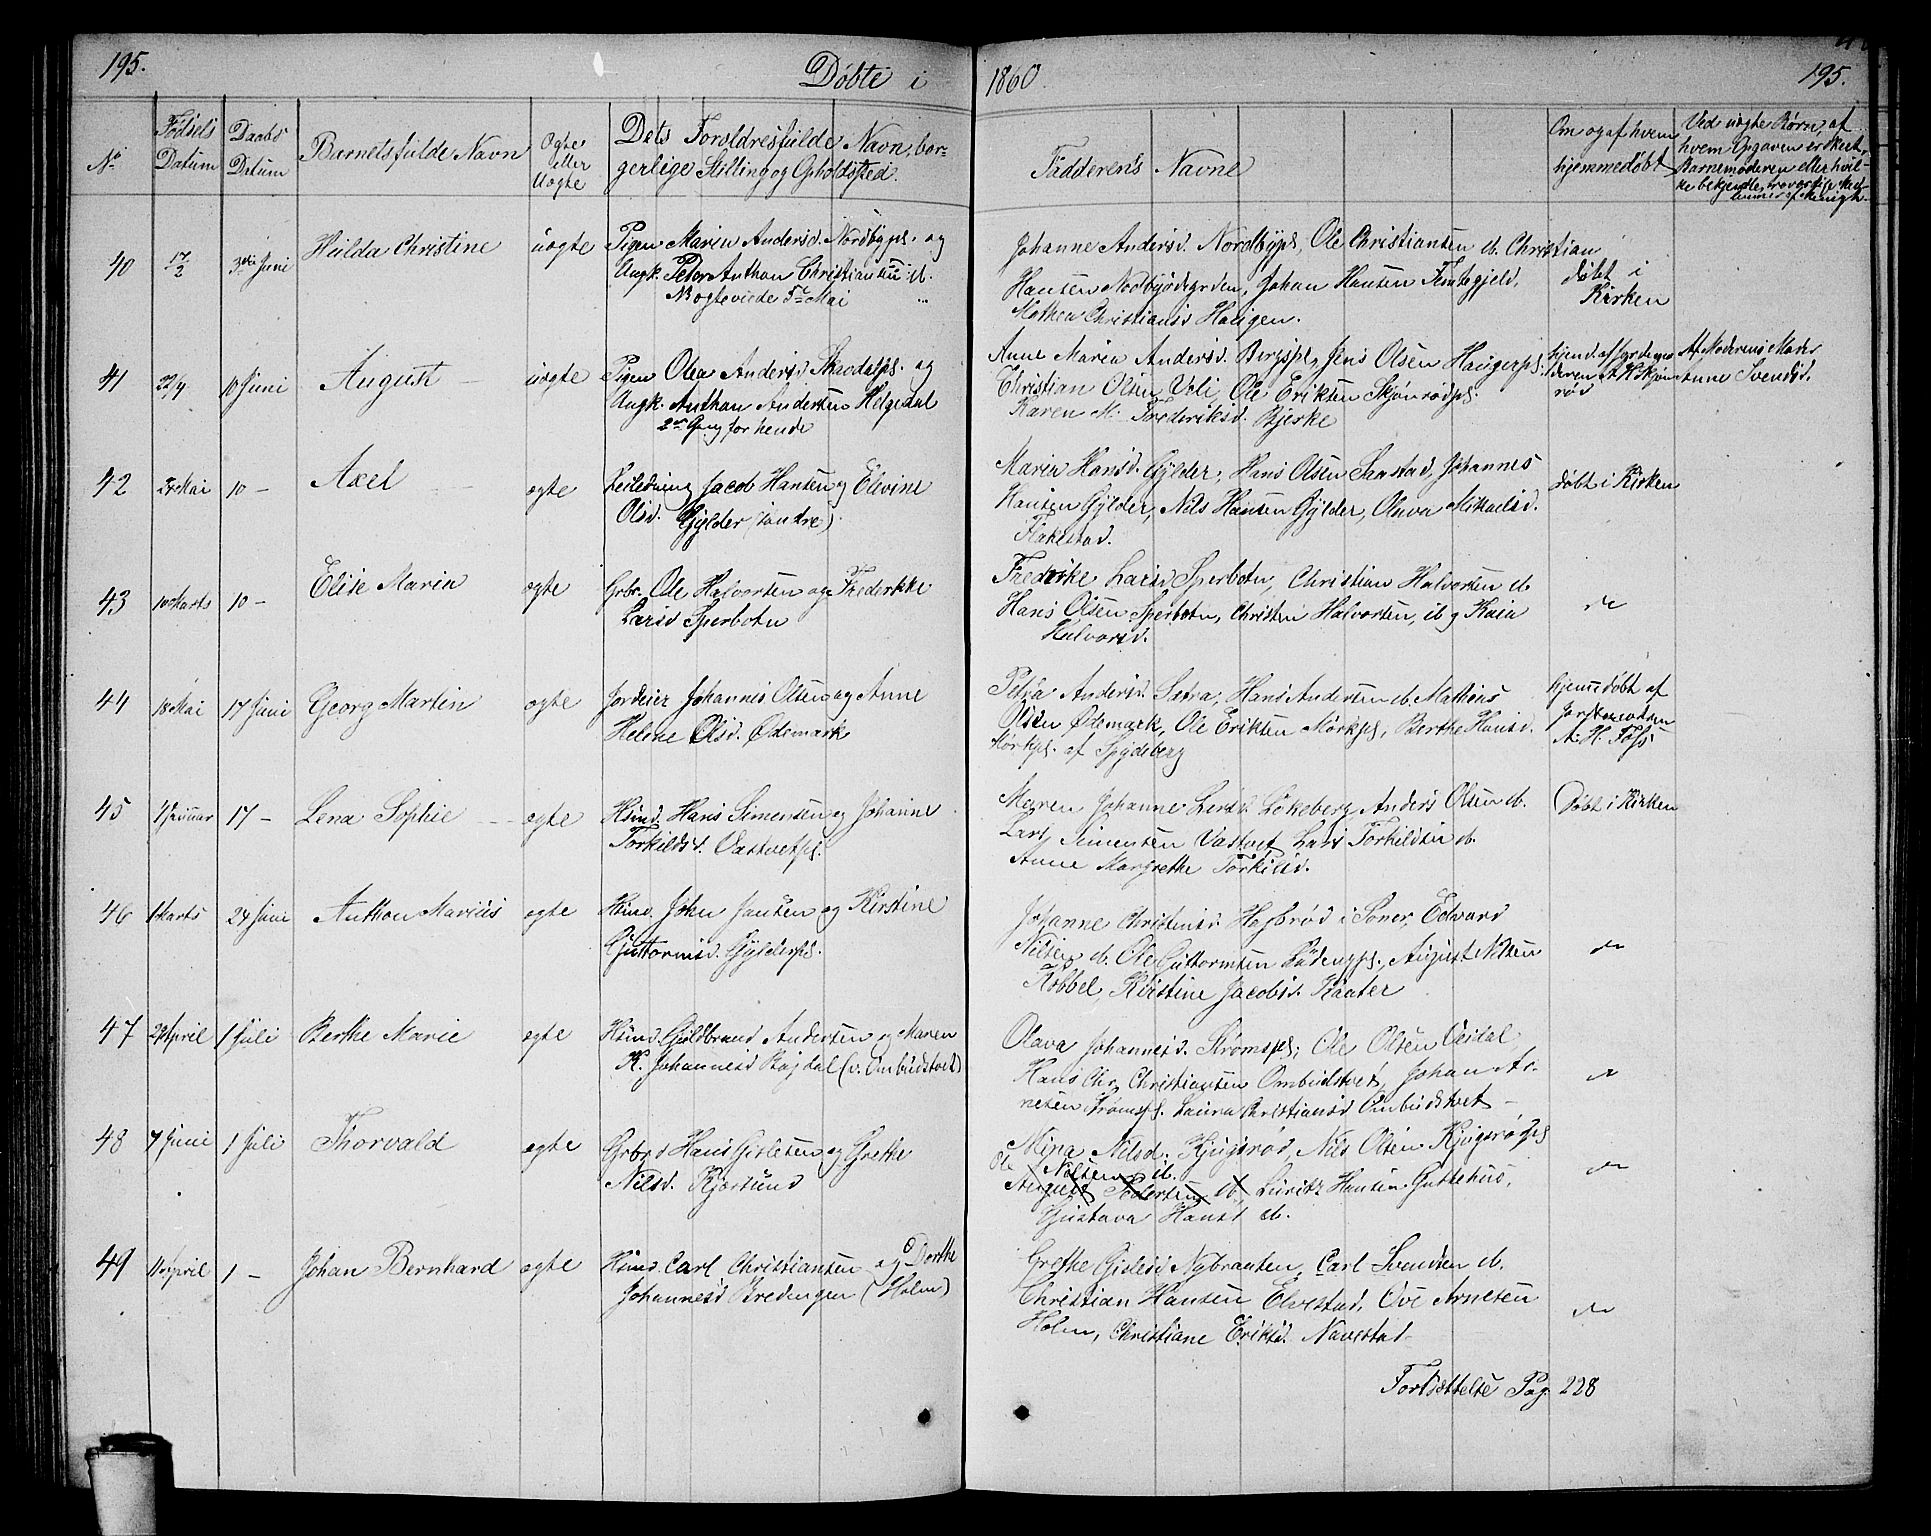 195.
Døbte i 1860.
195.
No
Fødsels Datum
Daabs Datum
Barnets fulde Navn
Ægte eller Uægte
Dets Forældres fulde Navn, borgerlige Stilling og Opholdsted.
Faddernes Navne
Om og af hvem hjemmedøbt
Ved uægte Børn, af hvem Opgaven er skeet, Barnemoderen eller hvilke bekjendte, troværdige
40 17/3 3die Juni Hulda Christine uægte Pigen Maren Andersd. Nordbypl. og
Ungk. Peder Anthon Christiansen ib.
NB ægteviede 5te Mai
Johanne Andersd. Nordbypl, Ole Christiansen ib. Christian
Hansen Nordbyødegrden, Johan Hansen
Mathea Christiansd Haugen.
døbt i
Kirken
41 22/4 10 Juni August uægte Pigen Olea Andersd. og
Ungk. Anthon Andersen Helgedal
2den Gang for hende
Anne Maria Andersd. Bergspl, Jens Olsen Haugerpl.
Christian Olsen Ueli, Ole Eriksen Skjønrødpl.
Karen M. Frederiksd. Bjerke
hjemd. af
rød
Af Moderens Moder
Anne Svendsd.
42 Mai 10 - Axel ægte Leilending Jacob Hansen og Elevine
Olsd. Gylder (søndre).
Maria Hansd. Gylder, Hans Olsen Saastad, Johannes
Hansen Gylder, Nils Hansen Gylder, Olava Mikailsd.
Flakestad.
døbt i Kirken
43 10 Marts 10 - Elise Maria ægte Grbr. Ole Halvorsen og Frederikke
Larsd Sperbotn
Fredrike Larsd Sperbotn, Christian Halvorsen ib
Hans Olsen Sperbotn, Christen Halvorsen, ib og Kaia
Halvorsd.
do
44 18 Mai 17 Juni Georg Martin ægte Jordeier Johannes Olsen og Anne
Helene Olsd. Ødemark
Petra Andersd. Sætra, Hans Andersen ib. Mathias
Olsen Ødemark, Ole Eriksen Mørkpl, Berthe Hansd.
Mørkpl. af Spydeberg
hjemedøbt af
Jordemoderen
A. H. Foss
45 Januar 17 - Lena Sophie ægte Hsmd. Hans Simensen og Johanne
Torkildsd. Vastvetpl.
Maren Johanne Larsd. Løkeberg, Anders Olsen ib.
Lars Simensen Vastvet, Lars Torkildsen ib.
Anne Margrethe Torkilsd.
Døbt i Kirken
46 1 Marts 24 Juni Anthon Marius ægte Hsmd. John Jansen og Kirstine
Guttormsd. Gylderpl.
Johanne Christensd. Hassrød i Soner, Edvard
Nilsen ib. Ole Guttormsen, August Nilsen
Røbbel, Kirstine Jacobsd.
do
47 29 April 1 Juli Berthe Marie ægte Hsmd. Guldbrand Andersen og Maren
K. Johannesd Bøjdal (v. Ombudstvet)
Olava Johannesd. Strømspl; Ole Olsen
Hans Chr. Christiansen Ombudstvet, Johan Ar-
nesen Strømspl. Laura Christiansd Ombudstvet -
do
48 7 Juni 1 Juli Thorvald ægte Grbr Hans Gislesen og Grethe
Nilsd. Kjørsund
Mina Nilsd. Kjugsrød, Nils Olsen Kjugsrødpl
Ole Nilsen ib.
August Pedersen ib, Lurits Hansen Guttehus,
Gustava Hansd ib.
do
49 11 April 1 - Johan Bernhard ægte Hsmd. Carl Christiansen og Dorthe
Johannesd Bredengen (Holm)
Grethe Gislesd Nybraaten, Carl Svendsen ib.
Christian Hansen Elvestad, Ove Arnesen
Holm, Christiane Eriksd. Navestad
do
Fortsættelse Pag. 228